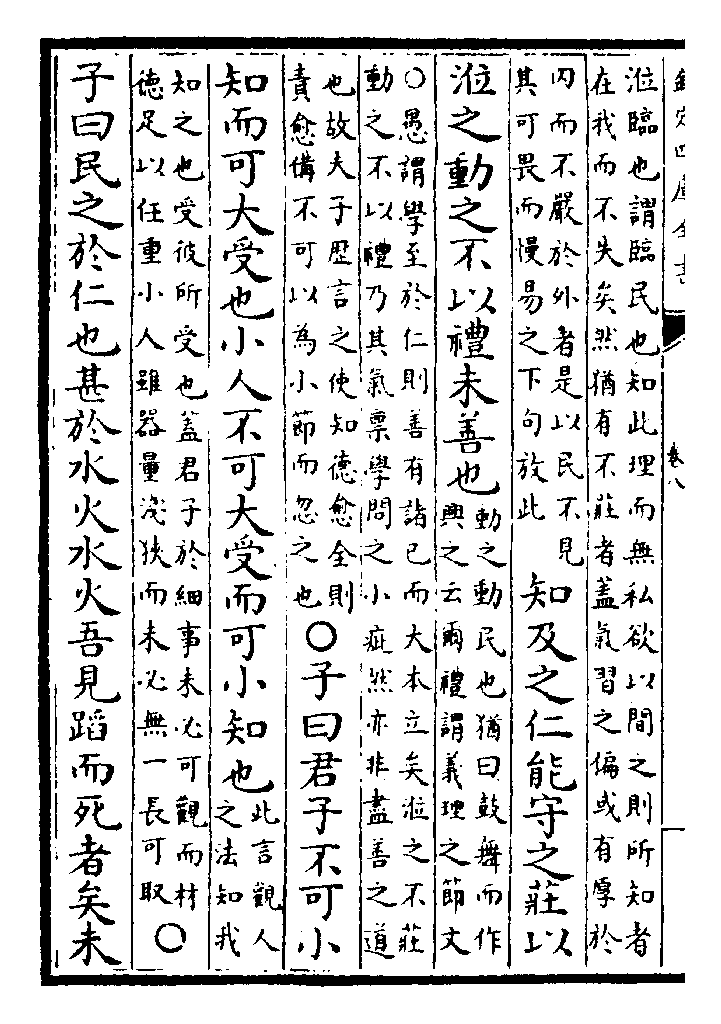 欽定四庫全書
卷八
涖臨也謂臨民也知此理而無私欲以間之則所知者
在我而不失矣然猶有不莊者蓋氣習之偏或有厚於
內而不嚴於外者是以民不見
其可畏而慢易之下句放此
知及之仁能守之莊以
涖之動之不以禮未善也
動之動民也猶曰鼓舞而作
興之云爾禮謂義理之節文
○愚謂學至於仁則善有諸己而大本立矣涖之不莊
動之不以禮乃其氣禀學問之小疵然亦非盡善之道
也故夫子歴言之使知德愈全則
責愈備不可以為小節而忽之也
○子曰君子不可小
知而可大受也小人不可大受而可小知也
此言觀人
之法知我
知之也受彼所受也蓋君子於細事未必可觀而材
德足以任重小人雖器量淺狹而未必無一長可取
○
子曰民之於仁也甚於水火水火吾見蹈而死者矣未